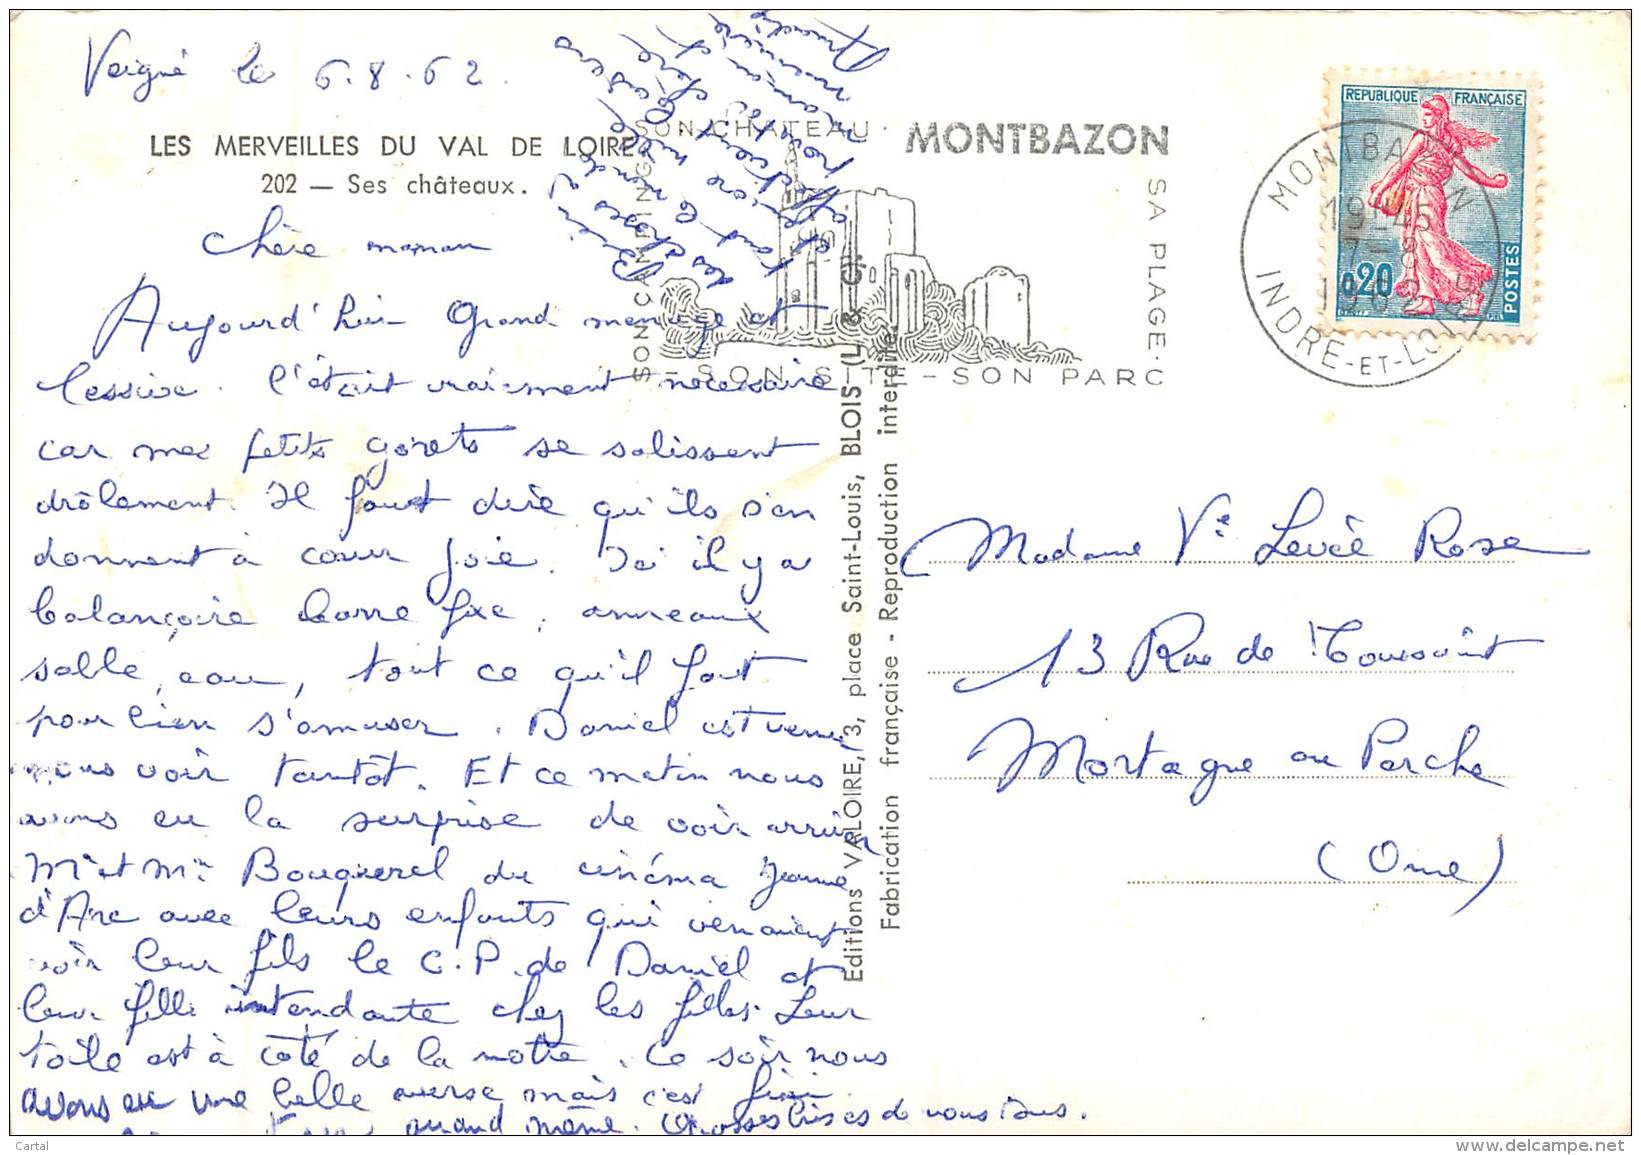 Veigné le 6.8.62.
LES MERVEILLES DU VAL DE LOIRE
202 — Ses châteaux.
Chère maman
Aujourd'hui Grand menage et
lessive. C'était vraiment nécessaire
car mes petits gorets se salissent
drôlement. Il faut dire qu'ils s'en
donnent à coeur joie. Ici il y a
balançoire barre fixe, anneaux
sable, eau, tout ce qu'il faut
pour bien s'amuser. Daniel est venu
nous voir tantôt. Et ce matin nous
avons eu la surprise de voir arriver
Mr et Mme Bouquerel du cinéma Jeanne
d'Arc avec leurs enfants qui venaient
voir leur fils le C.P. de Daniel et
leur fille intendante chez les filles. Leur
toile est à côté de la notre. Ce soir nous
avons eu une belle averse mais c'est fini
quand même. Grosses bises de nous tous.
SON CHATEAU
MONTBAZON
SON CAMPING
SA PLAGE
SON SITE - SON PARC
REPUBLIQUE FRANÇAISE
0,20
POSTES
MONTBAZON
19H45
7-8
1962
INDRE-ET-LOIRE
Editions VALOIRE, 3, place Saint-Louis, BLOIS (L. & C.).
Fabrication française - Reproduction interdite.
Madame Ve Levée Rose
13 Rue de Toussaint
Mortagne au Perche
(Orne)
Cartal
www.delcampe.net